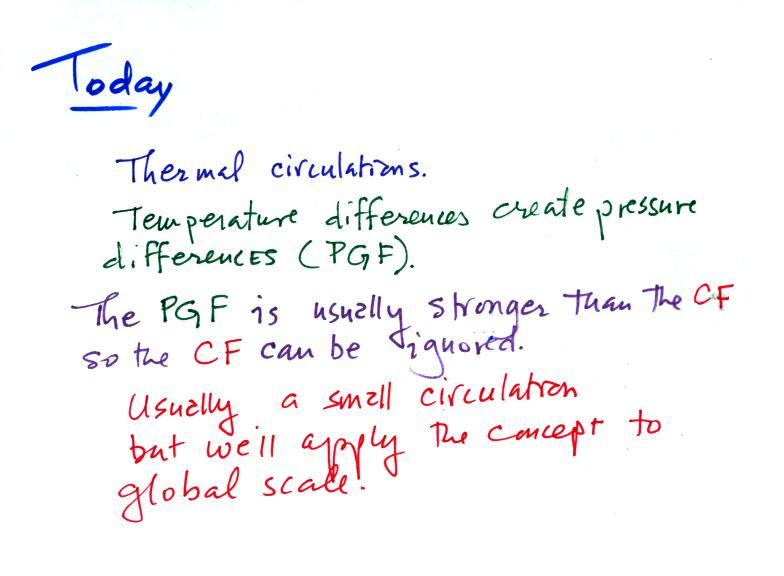 Today
Thermal circulations.
Temperature differences create pressure
differences (PGF).
The PGF is usually stronger than the CF
so the CF can be ignored.
Usually a small circulation
but we'll apply the concept to
global scale!